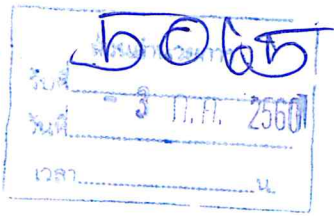 5065
รับที่
วันที่ - 3 ก.ค. 2560
เวลา.....................น.